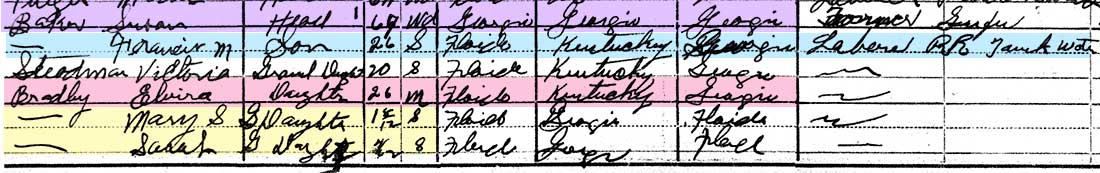 Baker Susan Head 1 67 Wd Georgia Georgia Georgia Farmer
— Francis M Son 26 S Florida Kentucky Georgia Laborer RR Tank
Steadman Victoria Grand Daght 20 S Florida Kentucky Georgia —
Bradley Elvira Daughter 26 M Florida Kentucky Georgia —
— Mary S G Daughter S Florida Georgia Florida —
— Sarah G Daughter S Florida Georgia Florida —